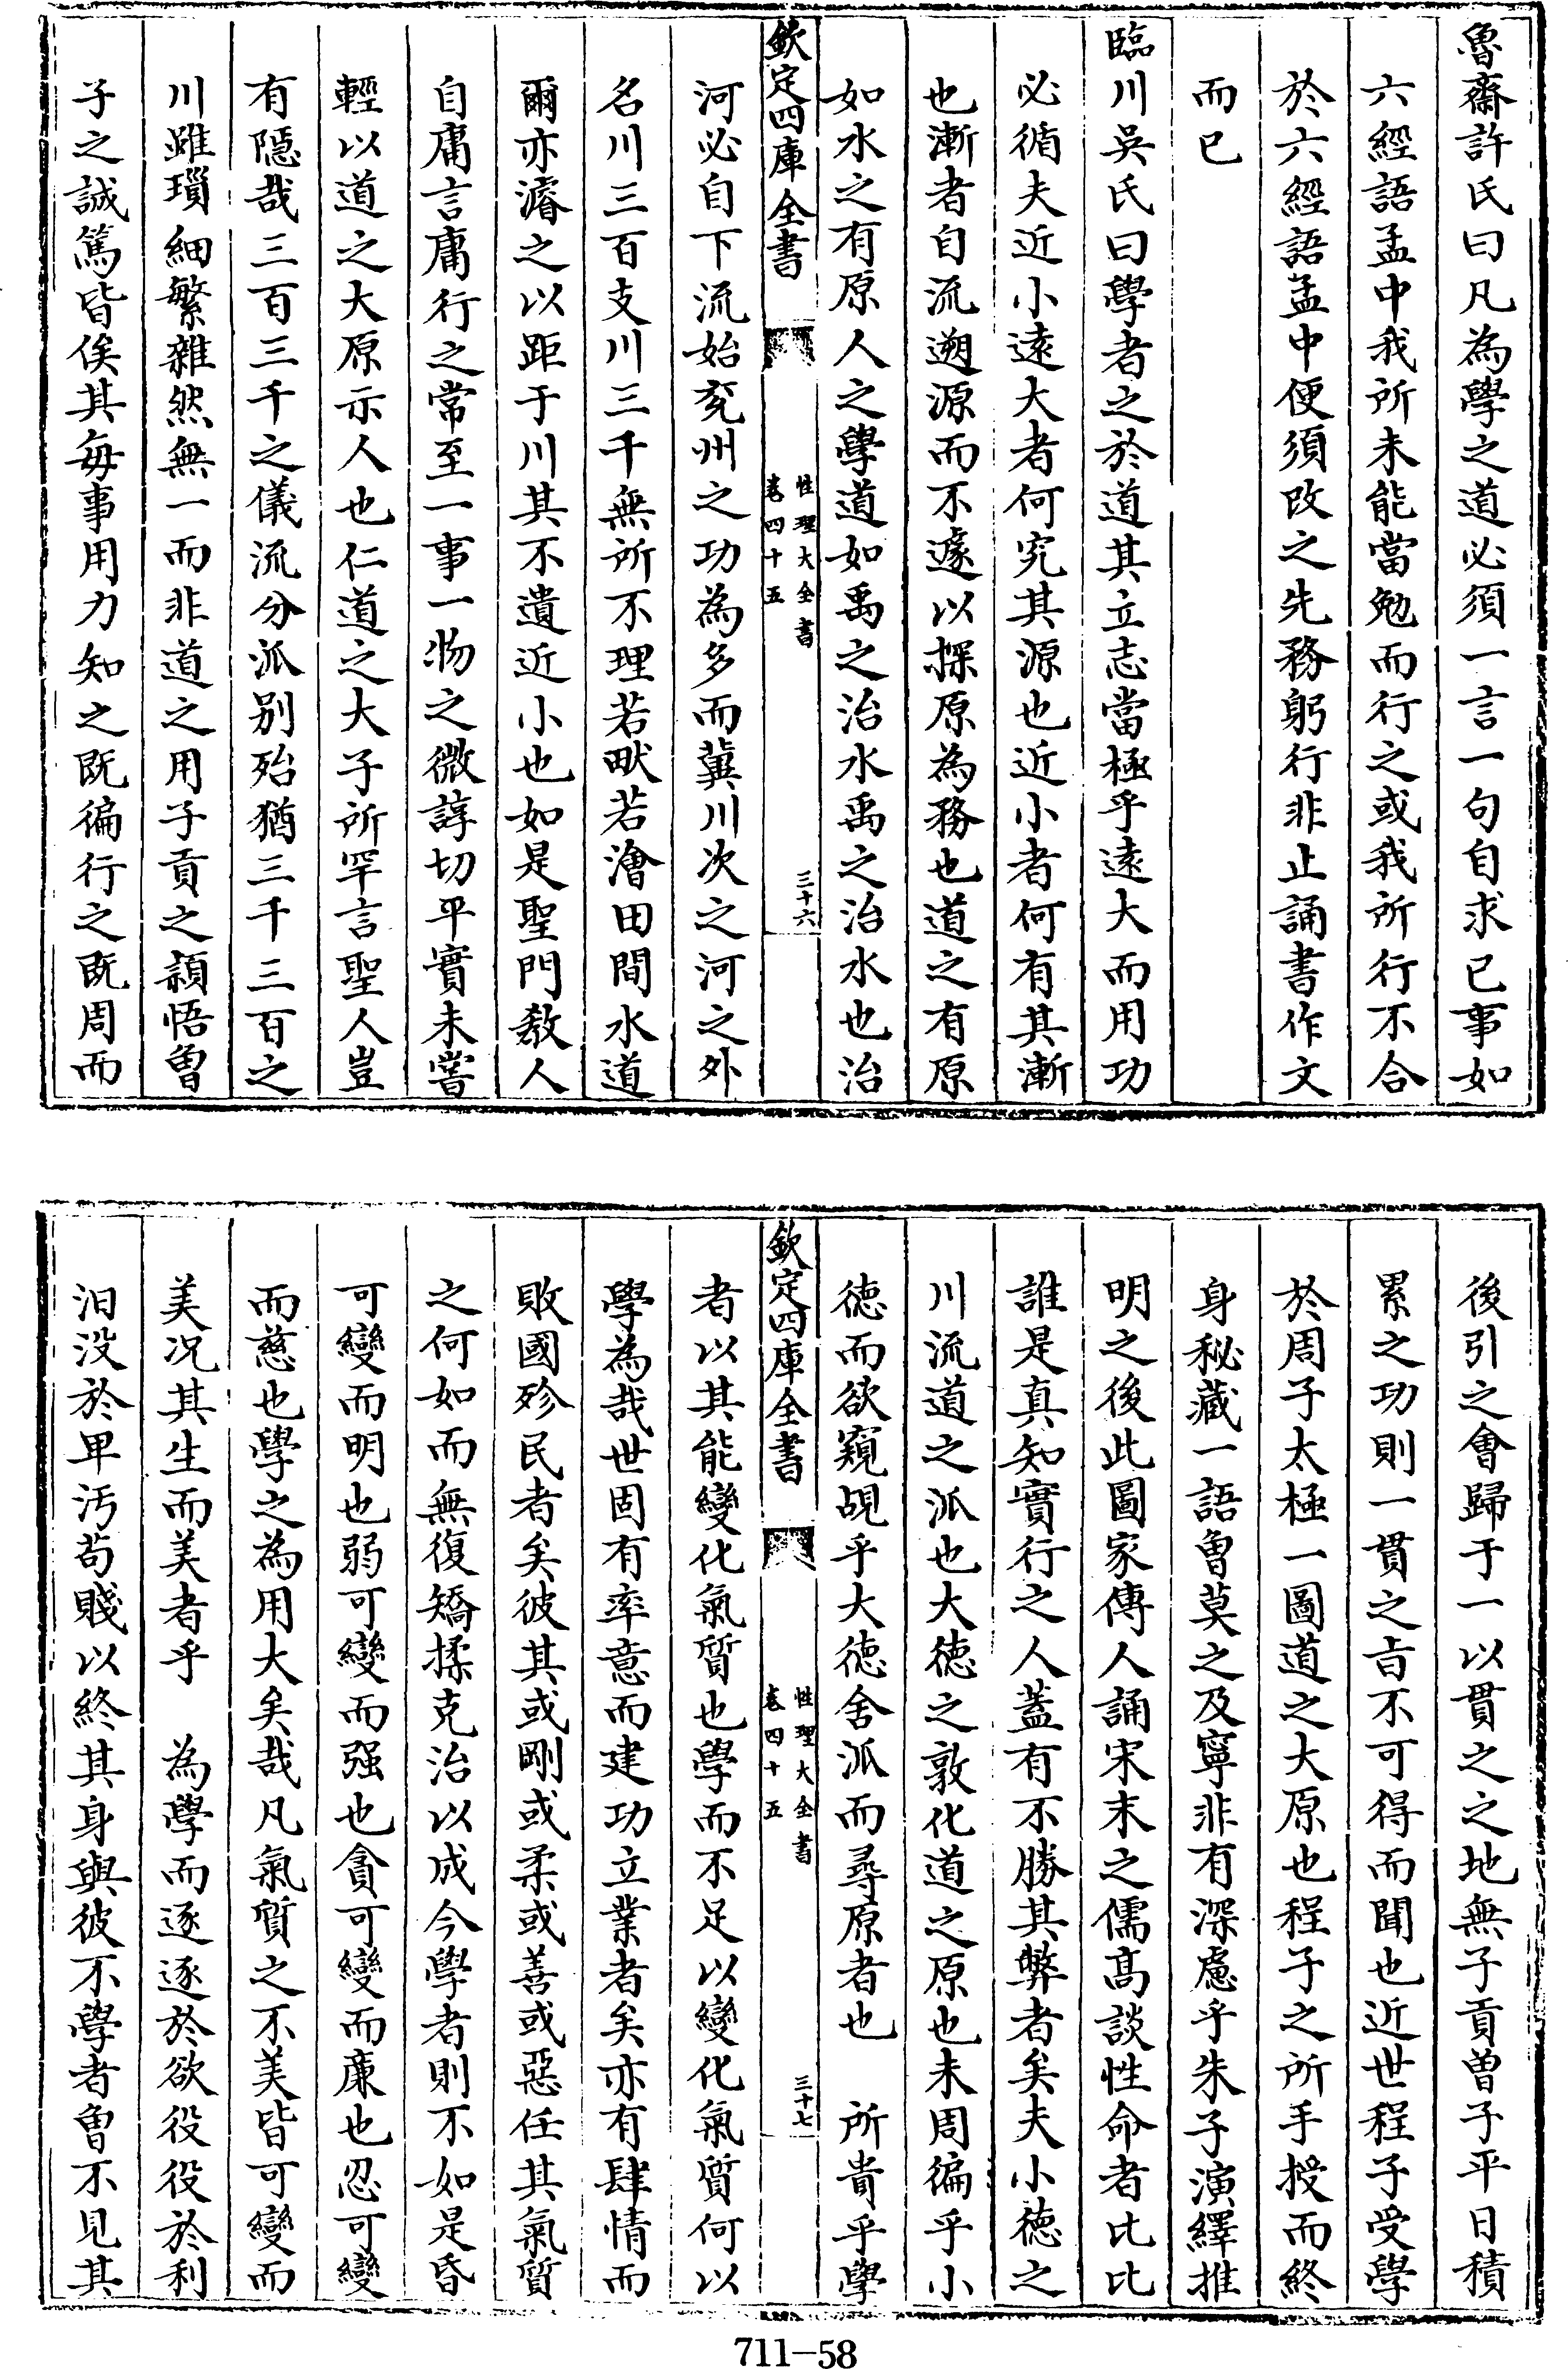 魯齋許氏曰凡為學之道必須一言一句自求已事如
六經語孟中我所未能當勉而行之或我所行不合
於六經語孟中便須改之先務躬行非止誦書作文
而已
臨川吳氏曰學者之於道其立志當極乎遠大而用功
必循夫近小遠大者何究其源也近小者何有其漸
也漸者自流遡源而不遽以探原為務也道之有原
如水之有原人之學道如禹之治水禹之治水也治
欽定四庫全書
性理大全書
卷四十五
三十六
河必自下流始兖州之功為多而冀川次之河之外
名川三百支川三千無所不理若畎若澮田間水道
爾亦濬之以距于川其不遺近小也如是聖門教人
自庸言庸行之常至一事一物之微諄切平實未嘗
輕以道之大原示人也仁道之大子所罕言聖人豈
有隱哉三百三千之儀流分派别殆猶三千三百之
川雖瑣細繁雜然無一而非道之用子貢之頴悟曽
子之誠篤皆俟其每事用力知之既徧行之既周而
後引之會歸于一以貫之之地無子貢曽子平日積
累之功則一貫之㫖不可得而聞也近世程子受學
於周子太極一圖道之大原也程子之所手授而終
身秘藏一語曽莫之及寧非有深慮乎朱子演繹推
明之後此圖家傳人誦宋末之儒髙談性命者比比
誰是真知實行之人蓋有不勝其弊者矣夫小徳之
川流道之派也大徳之敦化道之原也未周徧乎小
徳而欲窺覘乎大徳舍派而尋原者也　所貴乎學
欽定四庫全書
性理大全書
卷四十五
三十七
者以其能變化氣質也學而不足以變化氣質何以
學為哉世固有率意而建功立業者矣亦有肆情而
敗國殄民者矣彼其或剛或柔或善或惡任其氣質
之何如而無復矯揉克治以成今學者則不如是昏
可變而明也弱可變而强也貪可變而廉也忍可變
而慈也學之為用大矣哉凡氣質之不美皆可變而
美况其生而美者乎　為學而逐逐於欲役役於利
汩没於卑汚苟賤以終其身與彼不學者曽不見其
711-58